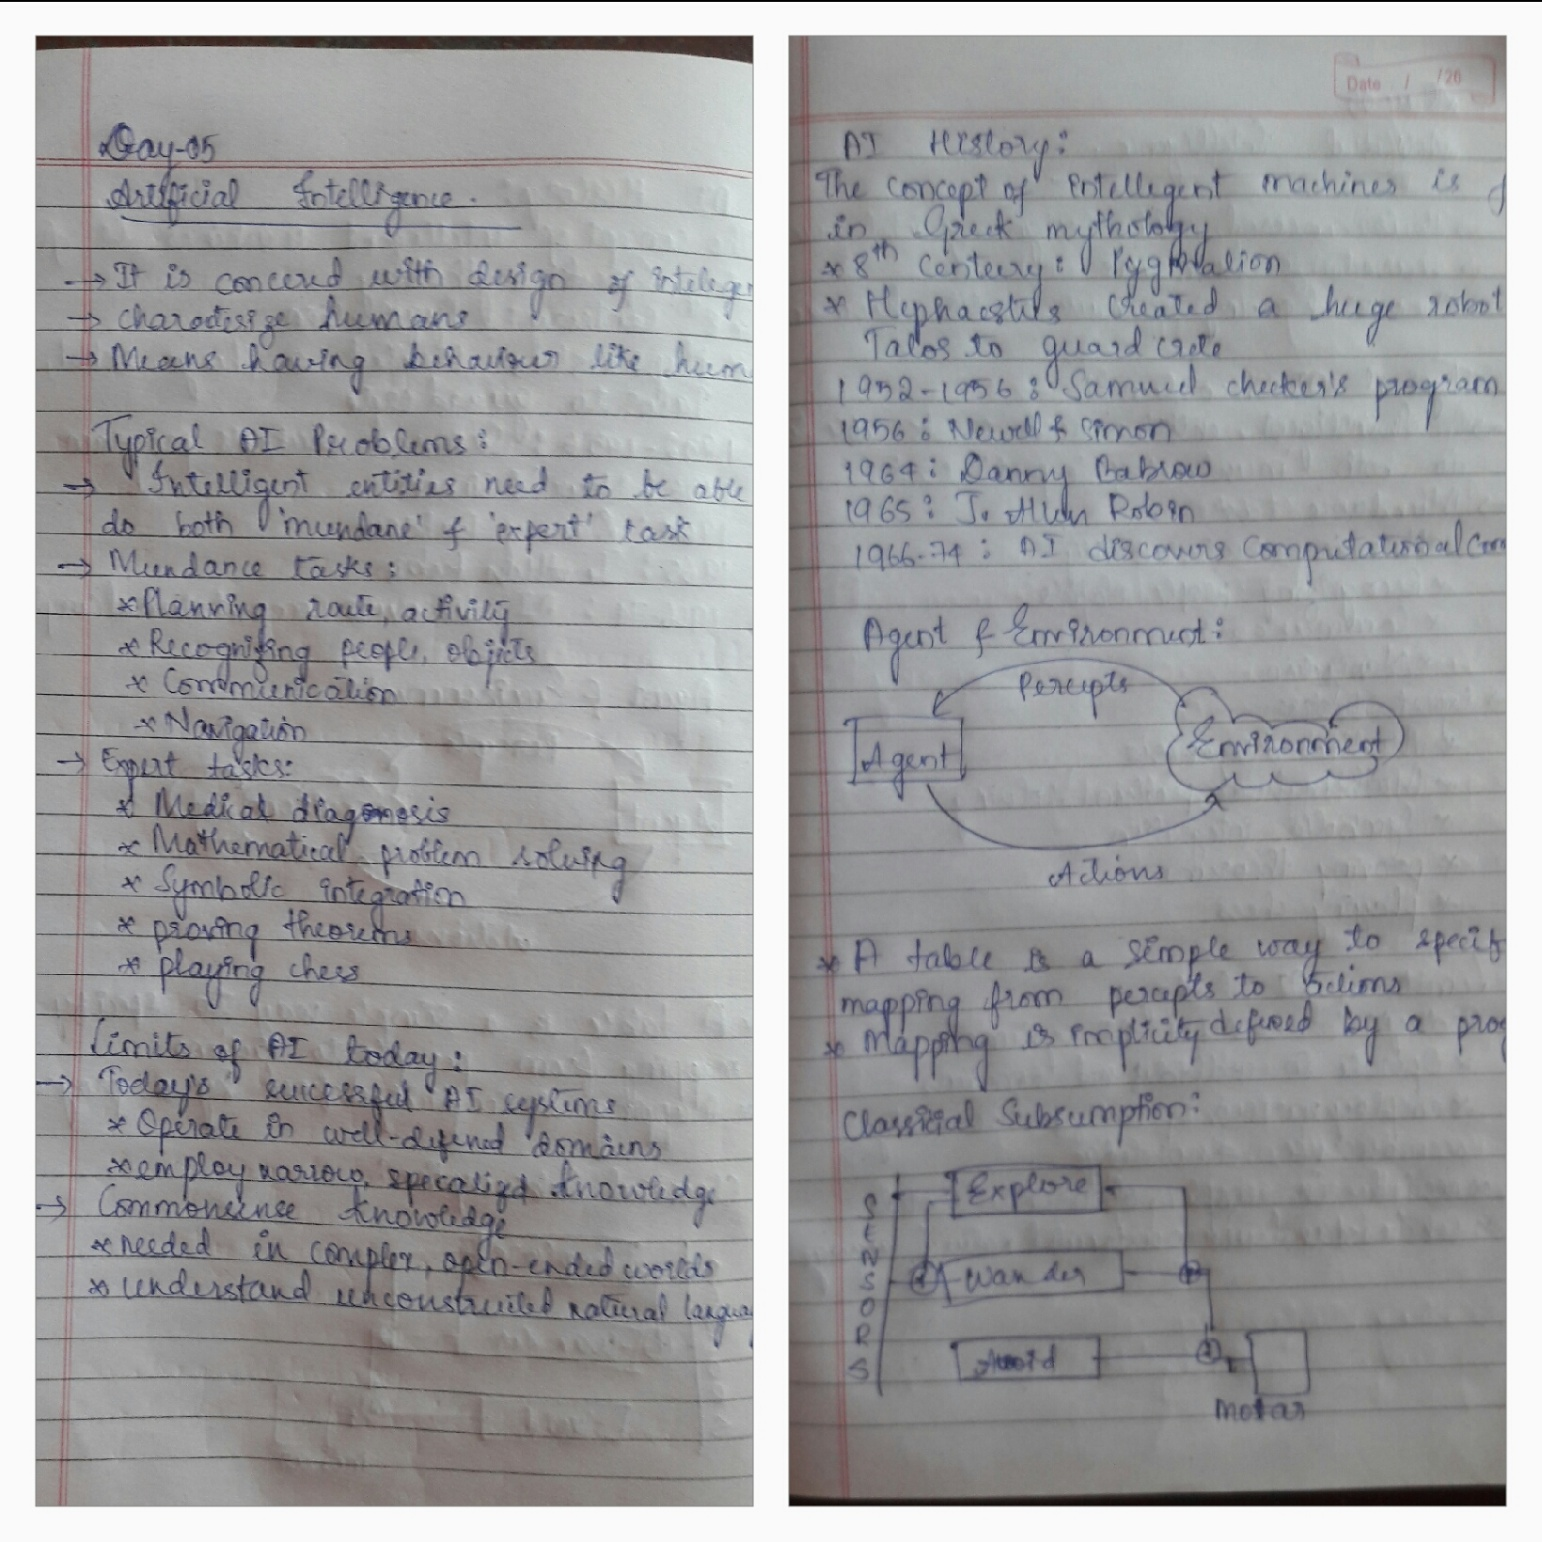 Day-05
Artificial Intelligence.
→ It is concerd with design of inteleger
→ charoterige humans
→ Means having behaviour like hum
Typical AI Problems:
→ Intelligent entities need to be able
do both 'mundane' & 'expert' task
→ Mundance tasks:
* Planning route, activity
* Recognizing people, objects
* Communication
* Navigation
→ Expert tasks:
* Medical diagonosis
* Mathematical problem solving
* Symbolic integration
* proving theorems
* playing chess
Limits of AI today:
→ Today's successful AI systems
* Operate in well-defined domains
* employ narrow, specalized knowledge
→ Commonsense knowledge
* needed in complex, open-ended worlds
* understand unconstruited natural langua
Date / /20
AI History:
The concept of intellegent machines is
in Greek mythology
* 8th Centeury: Pygmalion
* Hephaestus Created a huge robot
Talos to guard crete
1952-1956: Samuel checker's program
1956: Newell & Simon
1964: Danny Babrow
1965: J. Allen Robin
1966-74: AI discovers Computational Com
Agent & Environment:
Percepts
Agent
Environment
Actions
* A table is a simple way to specif
mapping from percepts to actions
* Mapping is implicity defined by a prog
Classical Subsumption:
SENSORS
Explore
Wander
Avoid
Motar